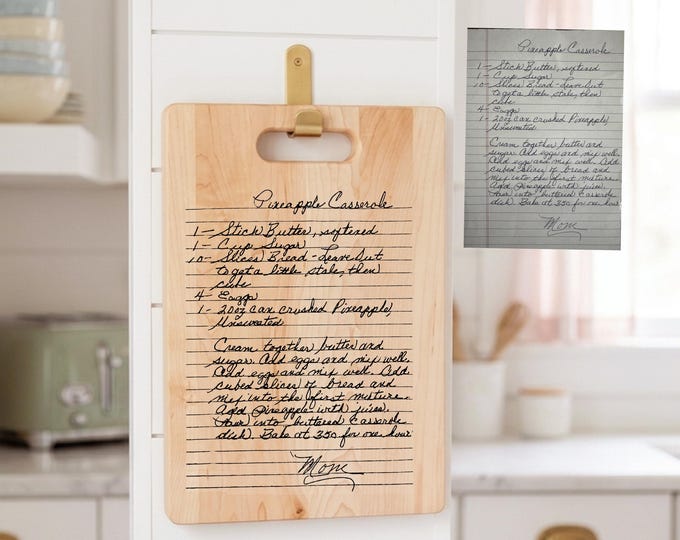 Pineapple Casserole
1 - Stick Butter, softened
1 - Cup Sugar
10 - Slices Bread - Leave out
to get a little stale, then
cube
4 - Eggs
1 - 20oz can crushed Pineapple,
Unsweeted
Cream together butter and
sugar. Add eggs and mix well.
Add eggs and mix well. Add
cubed slices of bread and
mix into the first mixture.
Add Pineapple with juices.
Pour into buttered Casserole
dish. Bake at 350 for one hour
Mom
Pineapple Casserole
1 - Stick Butter, softened
1 - Cup Sugar
10 - Slices Bread - Leave out
to get a little stale, then
cube
4 - Eggs
1 - 20oz can crushed Pineapple,
Unsweeted
Cream together butter and
sugar. Add eggs and mix well.
Add eggs and mix well. Add
cubed slices of bread and
mix into the first mixture.
Add Pineapple with juices.
Pour into buttered Casserole
dish. Bake at 350 for one hour
Mom